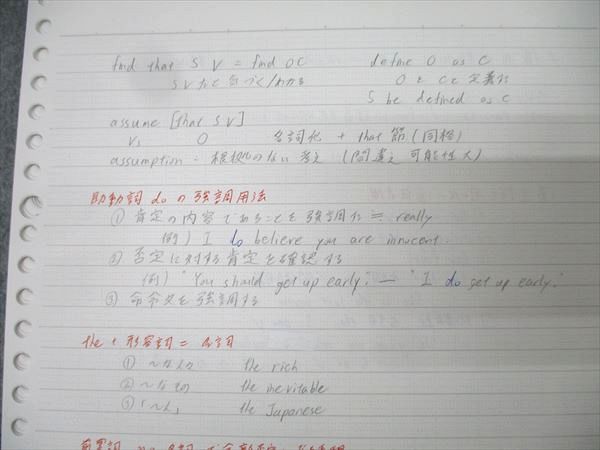 find that S V = find O C
define O as C
S V だと気づく/わかる
O を C と定義する
S be defined as C
assume [that S V]
V₁ O 名詞化 + that 節 (同格)
assumption - 根拠のない考え (間違え可能性大)
助動詞 do の強調用法
① 肯定の内容であることを強調 ≒ really
例) I do believe you are innocent.
② 否定に対する肯定を確認する
例) "You should get up early." — "I do get up early."
③ 命令文を強調する
the + 形容詞 = 名詞
① ~な人々 the rich
② ~なもの the inevitable
③ 「~人」 the Japanese